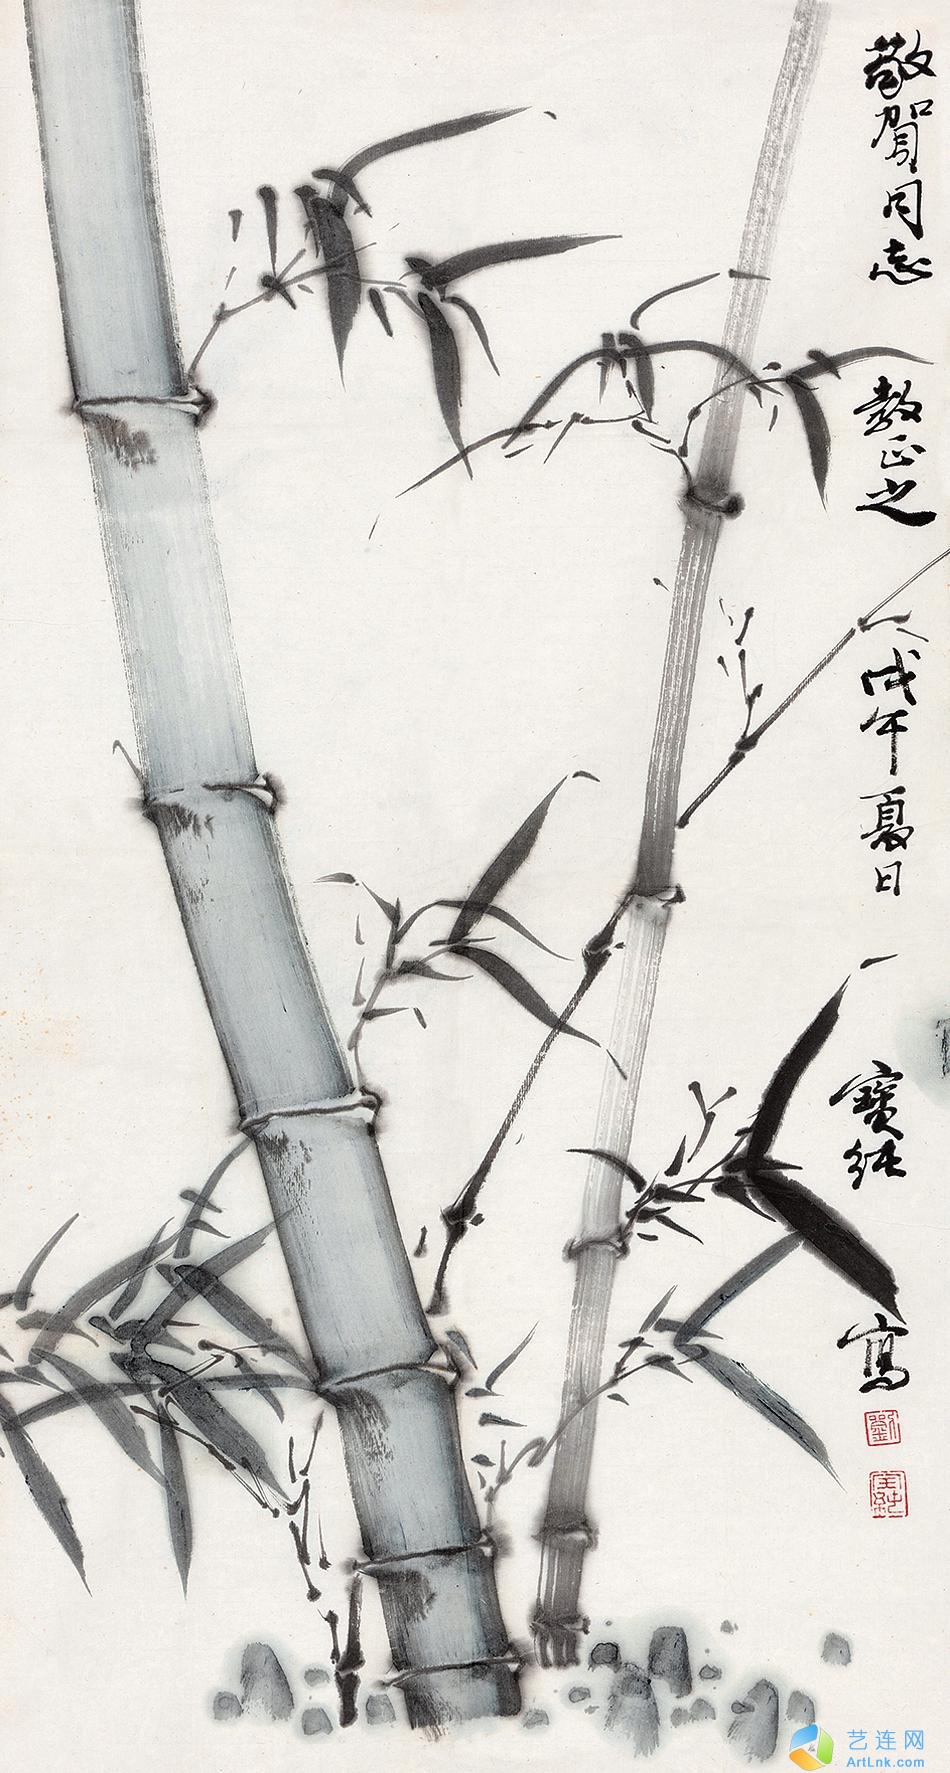 敬賀同志 教正之 戊午夏日 寶純 寫
劉
宝純
艺连网
ArtLnk.com